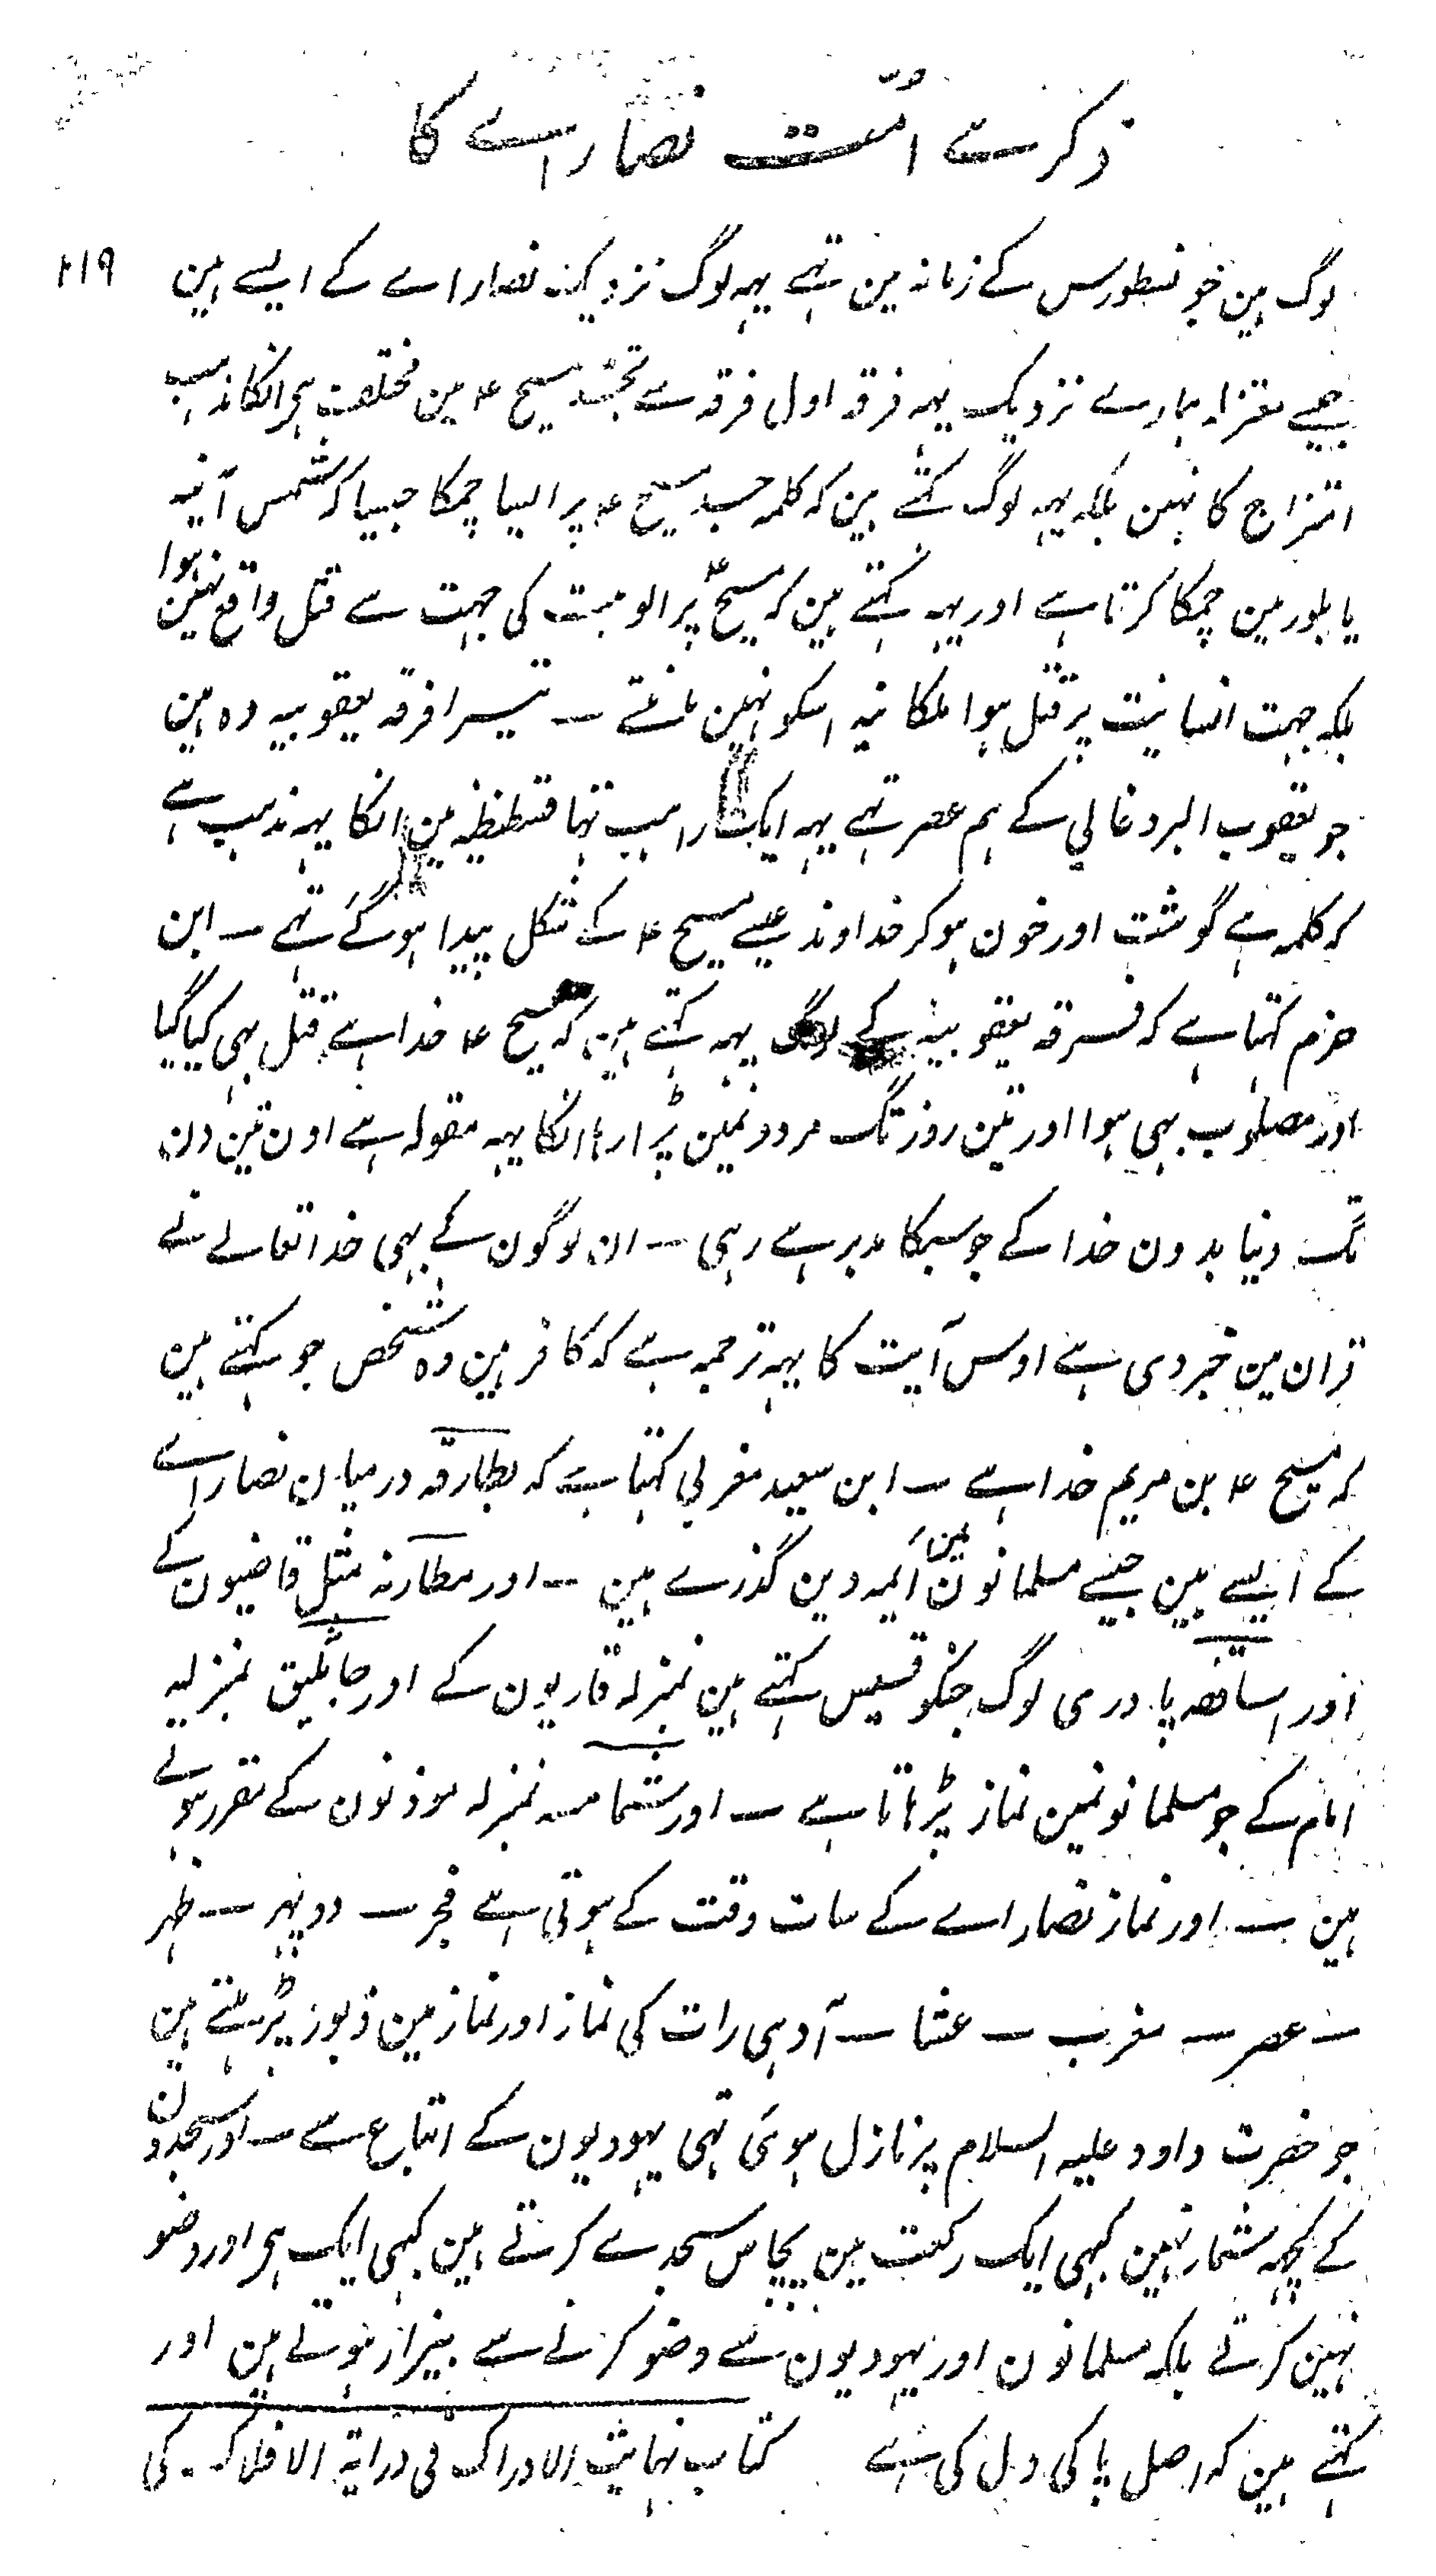 ذکرے امّت نصاراے کا
۲۱۹
لوگ ہین جو نسطورس کے زمانہ مین تہے یہہ لوگ نزدیک نصاراے کے ایسے ہین
جیسے معتزلہ ہمارے نزدیک یہہ فرقہ اول فرقہ سے تجسّد مسیح ۴ مین مختلف ہی انکا مذہب
امتزاج کا نہین بلکہ یہہ لوگ کہتے ہین کہ کلمہ جسد مسیح ۴ پر ایسا چمکا جیسا کہ شمس آئنیہ
یا بلور مین چمکا کرتا ہے اور یہہ کہتے ہین کہ مسیح ۴ پر الوہیت کی جہت سے قتل واقع نہین ہوا
بلکہ جہت انسانیت پر قتل ہوا ملکانیہ اسکو نہین مانتے ۔ تیسرا فرقہ یعقوبیہ وہ ہین
جو یعقوب البردغالی کے ہم عصر تہے یہہ ایک راہب تہا قسطنطنیہ مین انکا یہہ مذہب ہے
کہ کلمہ ہے گوشت اور خون ہو کر خداوند عیسے مسیح ۴ کے شکل پیدا ہو گئے تہے ۔ ابن
حزم کہتا ہے کہ فرقہ یعقوبیہ کے لوگ یہہ کہتے ہین کہ مسیح ۴ خدا ہے قتل بہی کیا گیا
اور مصلوب بہی ہوا اور تین روز تک مردو نمین پڑا رہا انکا یہہ مقولہ ہے اون تین دن
تک دنیا بدون خدا کے جو سبکا مدبر ہے رہی ۔ ان لوگون کے بہی خدا تعالے نے
قران مین خبر دی ہے اوس آیت کا یہہ ترجمہ ہے کہ کافر ہین وہ شخص جو کہتے ہین
کہ مسیح ۴ بن مریم خدا ہے ۔ ابن سعید مغربی کہتا ہے کہ بطارقہ درمیان نصاراے
کے ایسے ہین جیسے مسلمانون مین ائمہ دین گذرے ہین ۔ اور مطارنہ مثل قاضیون کے
اور اساقفہ پادری لوگ جنکو قسیس کہتے ہین بمنزلہ قاریون کے اور جاثلیق بمنزلہ
امام کے جو مسلمانو نمین نماز پڑہاتا ہے ۔ اور شمامسہ بمنزلہ موذنون کے مقرر ہوتے
ہین ۔ اور نماز نصاراے کے سات وقت کے ہوتی ہے فجر ۔ دوپہر ۔ ظہر
۔ عصر ۔ مغرب ۔ عشا ۔ آدہی رات کی نماز اور نماز مین زبور پڑہتے ہین
جو حضرت داود علیہ السلام پر نازل ہوئی تہی یہودیون کے اتباع سے ۔ اور سجدون
کے کچہہ شمار نہین کبہی ایک رکعت مین پچاس سجدے کرتے ہین کبہی ایک ہی اور وضو
نہین کرتے بلکہ مسلمانون اور یہودیون سے وضو کرنے سے بیزار ہوتے ہین اور
کہتے ہین کہ اصل پاکی دل کی ہے کتاب نہایت الادراک فی درایة الافلاک ۔ کی